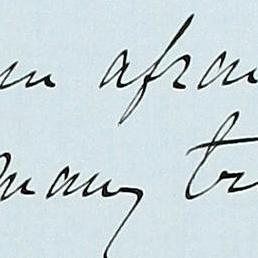 m afrai
many tr